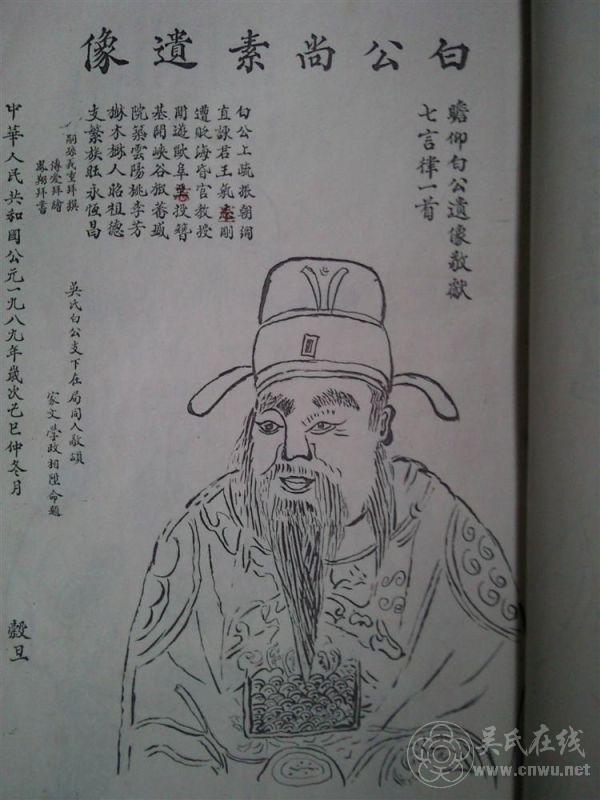 白公尚素遺像
瞻仰白公遺像敬獻
七言律一首
白公上疏振朝綱
直諫君王氣剛
遭貶海昏官教授
閒遊歐阜投簪
基開峽谷徽蕃盛
院築雲陽桃李芳
樹木樹人昭祖德
支繁族旺永恆昌
嗣孫義重拜撰
傳愛拜繪
鳳翔拜書
吳氏白公支下在局同人敬頌
家文學政相陞命題
中華人民共和國公元一九八九年歲次己巳仲冬月 穀旦
吴氏在线
www.cnwu.net